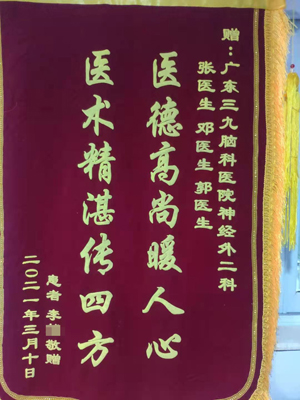 赠：广东三九脑科医院神经外二科
张医生 邓医生 郭医生
医德高尚暖人心
医术精湛传四方
患者 李 敬赠
二〇二一年三月十日